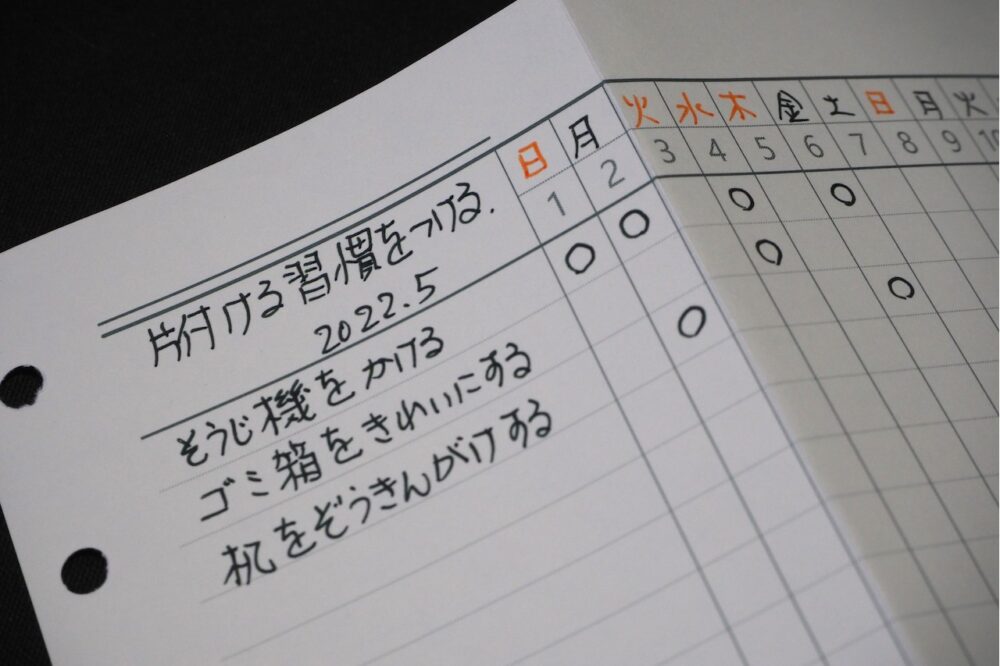 日 月 火 水 木 金 土 日 月 火
1 2 3 4 5 6 7 8 9 10
片付ける習慣をつける.
2022.5
そうじ機をかける
ゴミ箱をきれいにする
机をぞうきんがけする